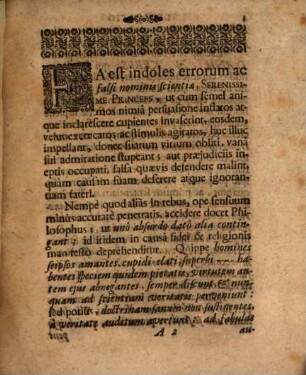 EA est indoles errorum ac
falsi nominis scientiæ, SERENISSI-
ME PRINCEPS, ut cum semel ani-
mos nimiâ persuasione inflatos at-
que inclarescere cupientes invaserint, eosdem,
velut excæcatos ac stimulis agitatos, huc illuc
impellant, donec suarum virium obliti, vanâ
sui admiratione stupeant; aut præjudiciis in-
eptis occupati, falsa quævis defendere malint,
quàm causam suam deserere atque ignoran-
tiam fateri.
Nempè quod aliàs in rebus, ope sensuum
minùs accuratè penetratis, accidere docet Phi-
losophus; ut uno absurdo dato alia contin-
gant; id itidem in causa fidei & religionis
manifesto deprehenditur. Quippe homines
seipsos amantes, cupidi, elati, superbi
bentes speciem quidem pietatis, virtutem au-
tem ejus abnegantes, semper discunt, & nun-
quam ad scientiam veritatis perveniunt
potiùs, doctrinam sanam non sustinentes,
à veritate auditum avertunt, ad fabulas
A 2 au-